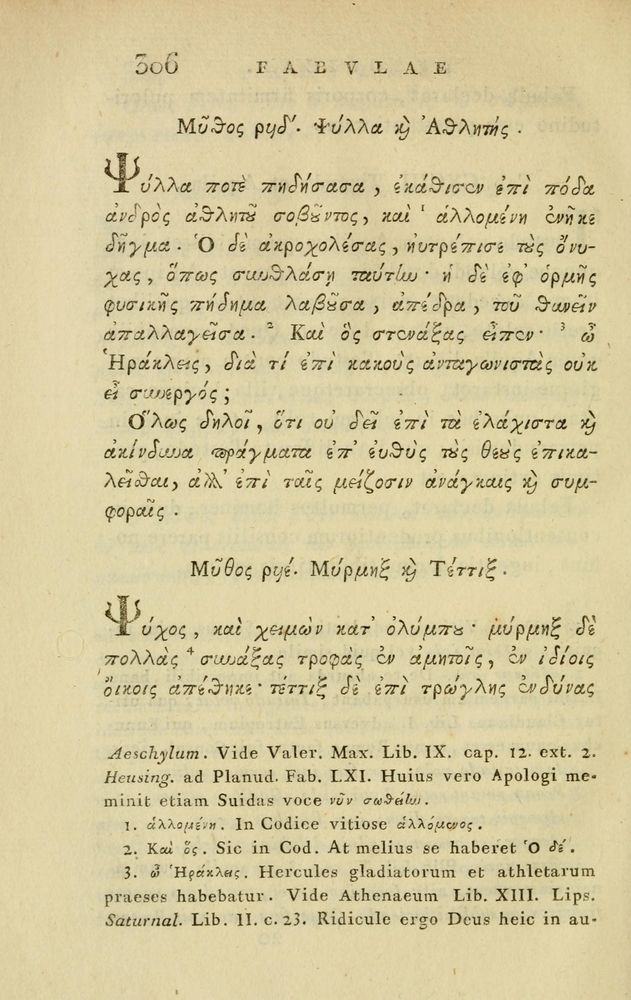 306 FABVLAE
Μῦθος ρϟδʹ. Ψύλλα ϗ Ἀθλητής.
Ψύλλα ποτὲ πηδήσασα, ἐκάθισεν ἐπὶ πόδα
ἀνδρὸς ἀθλητοῦ σοβοῦντος, καὶ ¹ ἁλλομένη ἐνῆκε
δῆγμα. Ὁ δὲ ἀκροχολέσας, ηὐτρέπισε τοὺς ὄνυ-
χας, ὅπως συνθλάσῃ ταύτην· ἡ δὲ ἐφ' ὁρμῆς
φυσικῆς πήδημα λαβοῦσα, ἀπέδρα, τοῦ θανεῖν
ἀπαλλαγεῖσα. ² Καὶ ὃς στενάξας εἶπεν· ³ ὦ
Ἡράκλεις, διὰ τί ἐπὶ κακοὺς ἀνταγωνιστὰς οὐκ
εἶ συνεργός;
Ὅλως δηλοῖ, ὅτι οὐ δεῖ ἐπὶ τὰ ἐλάχιστα ϗ
ἀκίνδυνα πράγματα ἐπ' εὐθὺς τοὺς θεοὺς ἐπικα-
λεῖσθαι, ἀλλ' ἐπὶ ταῖς μείζοσιν ἀνάγκαις ϗ συμ-
φοραῖς.
Μῦθος ρϟέ. Μύρμηξ ϗ Τέττιξ.
Ψύχος, καὶ χειμὼν κατ' ὀλύμπου· μύρμηξ δὲ
πολλὰς ⁴ συνάξας τροφὰς ἐν ἀμητοῖς, ἐν ἰδίοις
οἴκοις ἀπέθηκε· τέττιξ δὲ ἐπὶ τρώγλης ἐνδύνας
Aeschylum. Vide Valer. Max. Lib. IX. cap. 12. ext. 2.
Heusing. ad Planud. Fab. LXI. Huius vero Apologi me-
minit etiam Suidas voce νῦν σωθείην.
1. ἁλλομένη. In Codice vitiose ἁλλόμενος.
2. Καὶ ὃς. Sic in Cod. At melius se haberet Ὁ δέ.
3. ὦ Ἡράκλεις. Hercules gladiatorum et athletarum
praeses habebatur. Vide Athenaeum Lib. XIII. Lips.
Saturnal. Lib. II. c. 23. Ridicule ergo Deus heic in au-